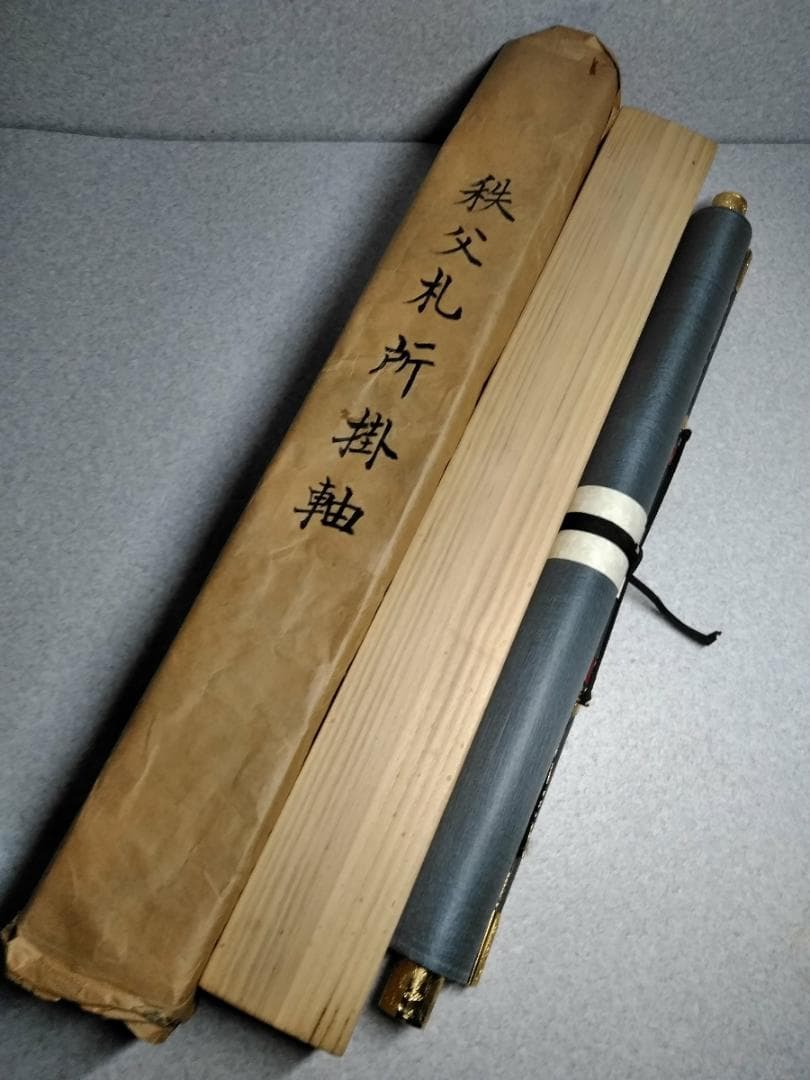 秩父札所掛軸